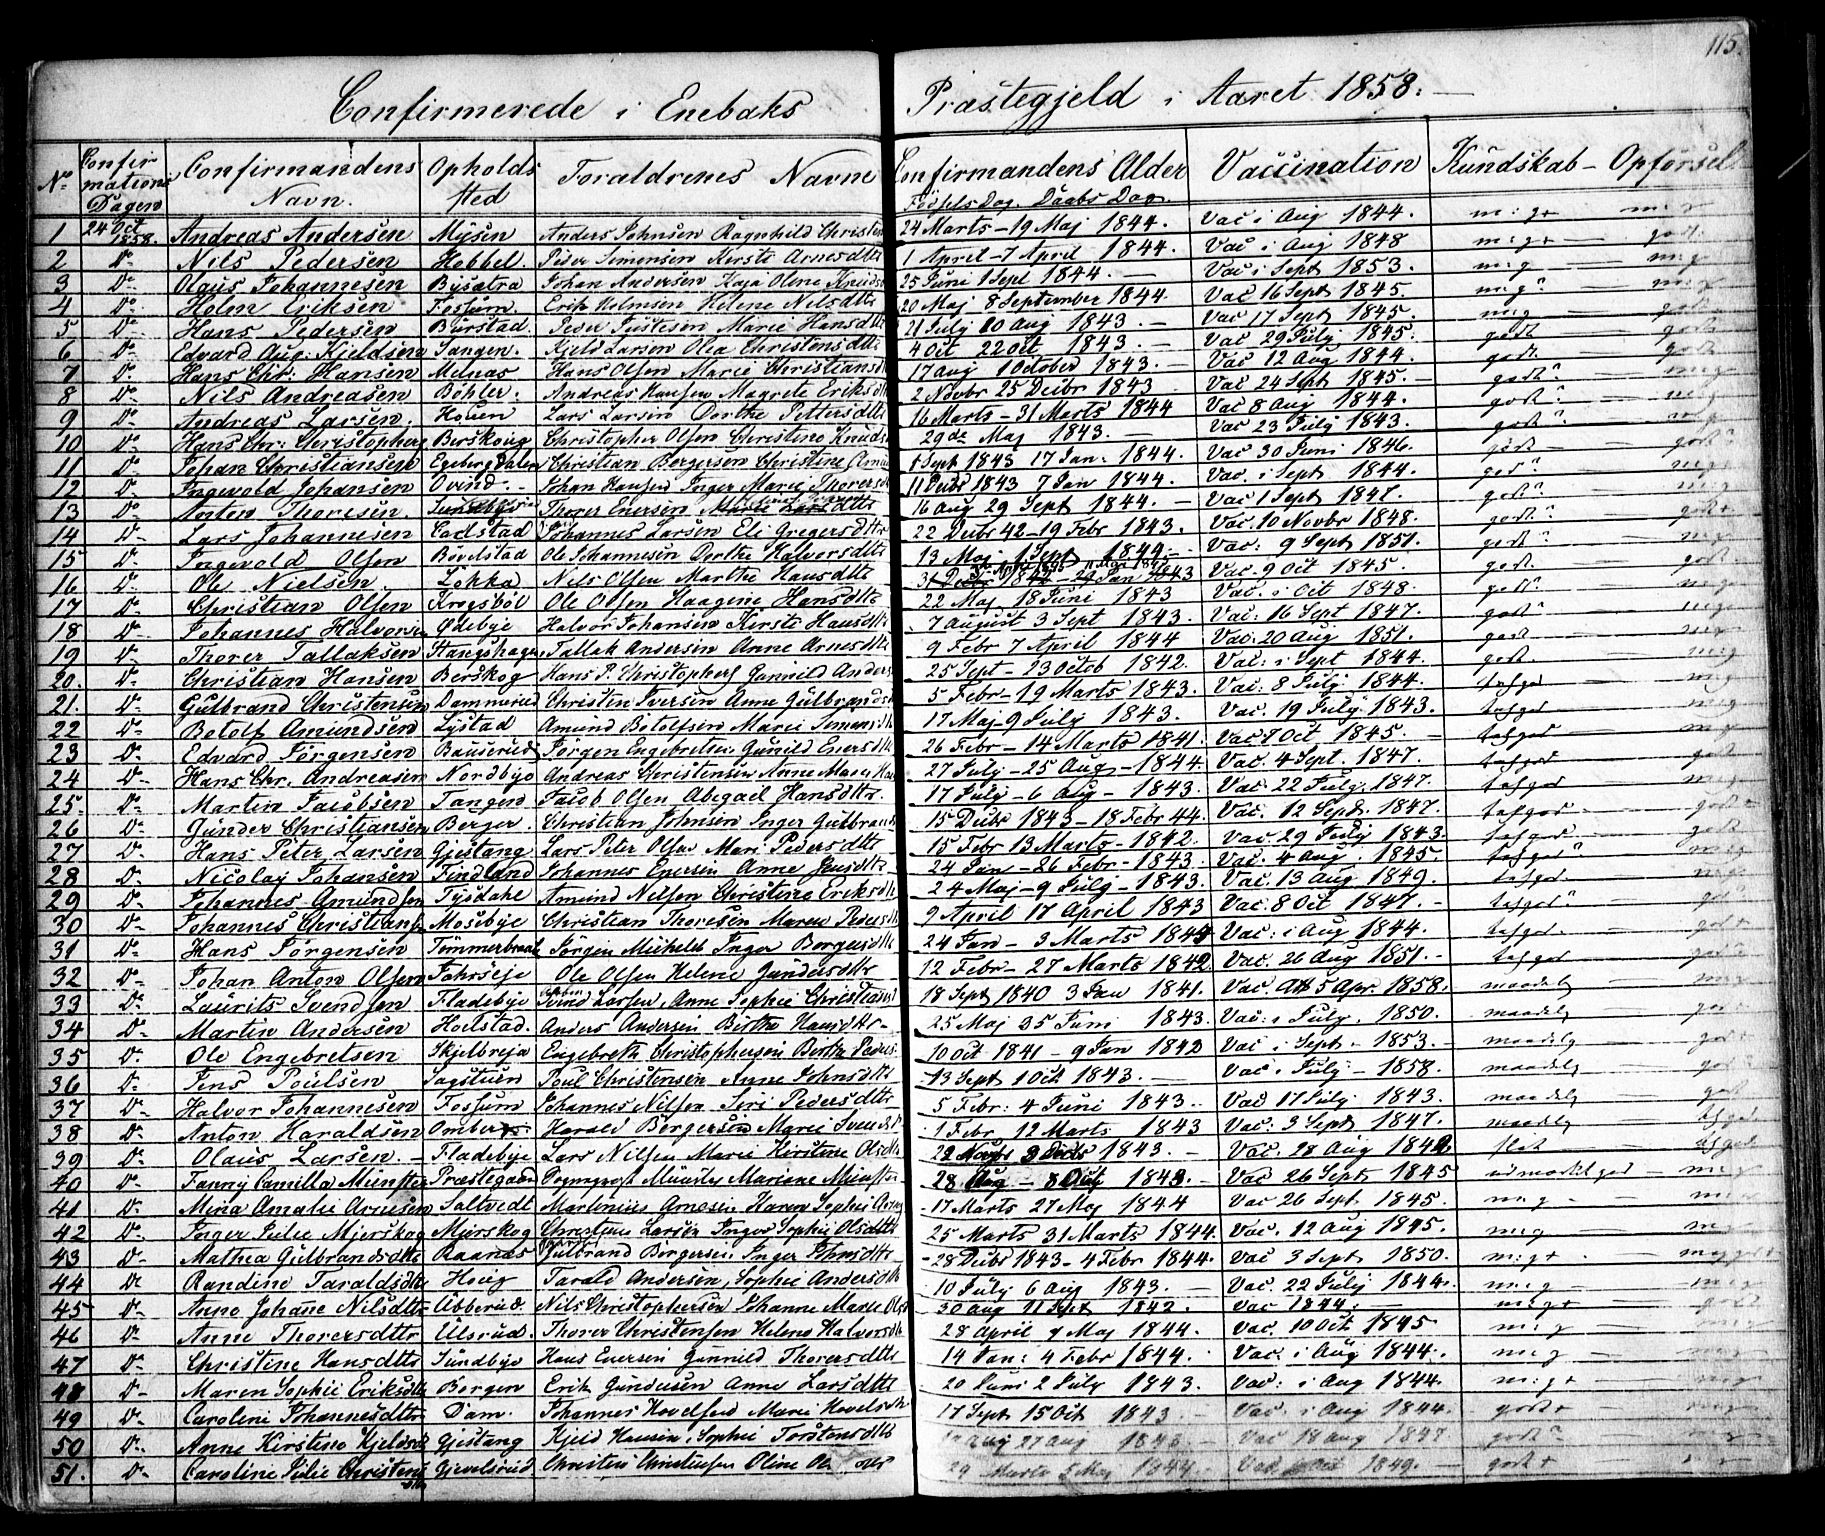 115.
Confirmerede i Enebaks Præstegjeld i Aaret 1858.
No Confirmations Dagen Confirmandens Navn. Opholds sted Foraldrenes Navne Confirmandens Alder Fødsels Dag. Daabs Dag. Vaccination Kundskab - Opførsel
1 24 Oct 1858. Andreas Andersen Mysen Anders Johnsen Ragnhild Christen 24 Marts - 19 Maj 1844. Vac i Aug 1844. m:g+
2 Do Nils Pedersen Hobbel. Peder Simensen Kersti Arnesdttr 1 April - 7 April 1844. Vac i Aug 1848 m:g+ godt
3 Do Olaus Johannesen Bysætra Johan Andersen Kaja Oline Knuds 25 Juni 1 Sept 1844. Vac i Sept 1853. m:g m:g
4 Do Holm Eriksen Fossum. Erik Holmsen Helene Nilsdttr 20 Maj 8 September 1844. Vac 16 Sept 1845. m:g m:g
5 Do Hans Pedersen Burstad. Peder Justesen Marie Hansdttr 21 July 20 Aug 1843. Vac 17 Sept 1845. m:g godt
6 Do Edvard Aug: Kjeldsen Tangen. Kjeld Larsen Olea Christensdttr 4 Oct 22 Oct 1843. Vac 29 July 1845. godt godt
7 Do Hans Chr: Hansen Melnæs Hans Olsen Marie Christiansd 17 Aug 1 October 1843. Vac 12 Aug 1844. godt godt
8 Do Nils Andreasen Bøhler. Andreas Hansen Magrete Eriksd 2 Novbr 25 Decbr 1843 Vac 24 Sept 1845. godt m:g
9 Do Andreas Larsen. Houen Lars Larsen Dorthe Pettersdtt 16 Marts - 31 Marts 1844 Vac 8 Aug 1844. godt
10 Do Hans Chr: Christophers Berskoug Christopher Olsen Christine Knuds 29 Maj 1843. Vac 23 July 1843. godt
11 Do Johan Christiansen Egeberg Dalen Christian Bergersen Christine Amu 1 Sept 1843 17 Jan. 1844. Vac 30 Juni 1846. godt godt
12 Do Ingevold Johansen Ovind. Johan Hansen Inger Marie Thorersd 11 Decbr 1843 7 Jan 1844. Vac. i Sept 1844. god
13 Do Morten Thoresen. Sundbye Thorer Enersen 16 Aug 29 Sept 1844. Vac 1 Sept 1847. godt
14 Do Lars Johannesen Carlstad Johannes Larsen Eli Gregersdttr 22 Decbr 42 - 19 Febr 1843. Vac. 10 Novbr 1848. godt
15 Do Ingevold Olsen Bøvelstad Ole Johannesen Dorthe Halvorsdttr 13 Maj 1 Sept 1844. Vac: 9 Sept 1851. godt
16 Do Ole Nielsen Løkka Nils Olsen Marthe Hansdttr 31 Decbr 1842 - 29 Jan 1843 Vac. 9 Oct 1845. godt godt
17 Do Christian Olsen Krogsbøl Ole Olsen Haagine Hansdttr 22 Maj 18 Juni 1843 Vac. i Oct 1848. godt
18 Do Johannes Halvorsen Ødebye Halvor Johansen Kersti Hansdttr 7 August 3 Sept 1843. Vac: 16 Sept 1847. godt
19 Do Thorer Tallaksen Stangshagen Tallak Andersen Anne Arnesdttr 9 Febr 7 April 1844 Vac: 20 Aug 1851. godt
20. Do Christian Hansen Berskog Hans P. Christophers Gunnild Anders 25 Sept - 23 Octob 1842. Vac: i Sept 1844. godt. m:g
21. Do Gulbrand Christensen Dammerud Christen Iversen Anne Gulbrands 5 Febr - 19 Marts 1843. Vac: 8 July 1844. tafgod m:g
22 Do Botolf Amundsen Lystad Amund Botolfsen Marie Simensd 17 Maj - 9 July 1843. Vac. 19 July 1843. tafgod m:g
23 Do Edvard Jørgensen Bauserud Jørgen Engebretsen Gunild Enersdttr 26 Febr - 14 Marts 1841. Vac 7 Oct 1845. tafgod m:g
24 Do Hans Chr. Andreasen Nordbye Andreas Christensen Anne Maria 27 July - 25 Aug - 1844 Vac. 4 Sept. 1847. tafgod godt
25 Do Martin Jacobsen Tangen Jacob Olsen Abegael Hansdttr. 17 July - 6 Aug - 1843. Vac. 22 July 1847. tafgod m:g
26 Do Gunder Christiansen Berger. Christian Johnsen Inger Gulbrands 15 Decbr 1843 - 18 Febr 44. Vac. 12 Sept. 1847. tafgod
27 Do Hans Peter Larsen Gjestang Lars Peter Olsen Mari Pedersdttr 15 Febr 13 Marts - 1842. Vac. 29 July 1843. tafgod godt
28 Do Nicolay Johansen Findland Johannes Enersen Anne Jensdttr 24 Jan - 26 Febr - 1843. Vac. 4 Aug. 1845. tafgod m:g
29 Do Johannes Amundsen Tysdahl Amund Nilsen Christine Eriksd 24 Maj - 9 July - 1843. Vac. 13 Aug 1849. tafgod
30 Do Johannes Christians Mosebye Christian Thoresen Maren Pedersd 9 April 17 April 1843 Vac. 8 Oct 1847. tafgod
31 Do Hans Jørgensen Tømmerbraate Jørgen Michels Inger Borgersdttr 24 Jan - 3 Marts 1844 Vac: i Aug 1844. tafgod
32 Do Johan Anton Olsen Fahrseje Ole Olsen Helene Gundersdttr 12 Febr - 27 Marts 1842. Vac. 26 Aug 1851. tafgod
33 Do Laurits Svendsen Fladebye Svend Larsen, Anne Sophie Christians 18 Sept 1840 3 Jan 1841. Vac. Att 5 Apr. 1858. maadelg
34 Do Martin Andersen Hoelstad. Anders Andersen Birthe Hansdttr 25 Maj 25 Juni 1843. Vac: i July. 1850. maadelg
35 Do Ole Engebretsen Skjelbreja Engebreth Christophersen Birthe Peders 10 Oct 1841 - 9 Jan 1842 Vac i Sept - 1853. maadelg
36 Do Jens Poulsen Sagstuen Poul Christensen Anne Johnsdttr 13 Sept 1 Oct 1843. Vac i July - 1858. maadelg
37 Do Halvor Johannesen Fossum Johannes Nilsen Siri Pedersdttr 5 Febr: 4 Juni 1843. Vac 17 July 1843. maadelg
38 Do Anton Haraldsen Harald Børgersen Marie Svends 1 Febr 12 Marts 1843 Vac: 3 Sept 1847. maadelg
39 Do Olaus Larsen. Fladebye Lars Nilsen Marie Kirstine Olsd 22 Novbr 3 Decbr 1843. Vac. 28 Aug 1842 slet tafgod
40 Do Fanny Camilla Münster Præstegaard Sogneprest Münster Mariane Münster 28 Aug - 8 Oct 1843. Vac 26 Sept 1845 udmærket god m:g
41 Do Mina Amalie Arnesen Saltvedt Martenius Arnesen Karen Sophie 17 Marts 27 Maj 1844 Vac 26 Sept. 1845. m:g
42 Do Inger Julie Mjerskog Mjerskog Christian Larsen Inger Sophie Olsdttr 25 Marts 31 Marts 1844. Vac. 12 Aug 1845. m:g m:g
43 Do Mathea Gulbrandsdttr Raanaas Gulbrand Børgersen Inger Johnsdttr 28 Decbr 1843 - 4 Febr 1844. Vac 3 Sept 1850. m:g+
44 Do Randine Taraldsdttr Høieg Tarald Andersen, Sophie Andersdttr 10 July 6 Aug 1843. Vac. 22 July 1844. m:g m:g
45 Do Anne Johane Nilsdttr Ubberud. Nils Christophersen Johanne Marie Ols 30 Aug 11 Sept 1842. Vac 1844. m:g+ godt
46 Do Anne Thorersdttr Ulsrud. Thorer Christensen Helene Halvorsdttr 28 April 9 Maj 1844. Vac. 10 Oct 1845 m:g m:g
47 Do Christine Hansdttr Sundbye Hans Enersen Gunnild Thorersdttr 14 Jan: 4 Febr 1844. Vac: i Aug 1844. m:g
48 Do Maren Sophie Eriksdttr Bergen Erik Gundersen Anne Larsdttr 20 Juni 2 July 1843. Vac: i Aug 1844. m:g+
49 Do Caroline Johannesdttr Dam. Johannes Hovelsen Marie Hovelsd 17 Sept 15 Oct 1843. Vac. i Aug 1844. godt+
50 Do Anne Kirstine Kjeldsd Gjestang Kjeld Hansen. Sophie Torstensdttr 27 Aug 1843. Vac 18 Aug 1847 godt
51. Do Caroline Julie Christensdttr Gjevelsrud Christen Christensen Oline 29 Marts 5 Maj 1844. Vac 1849. godt+